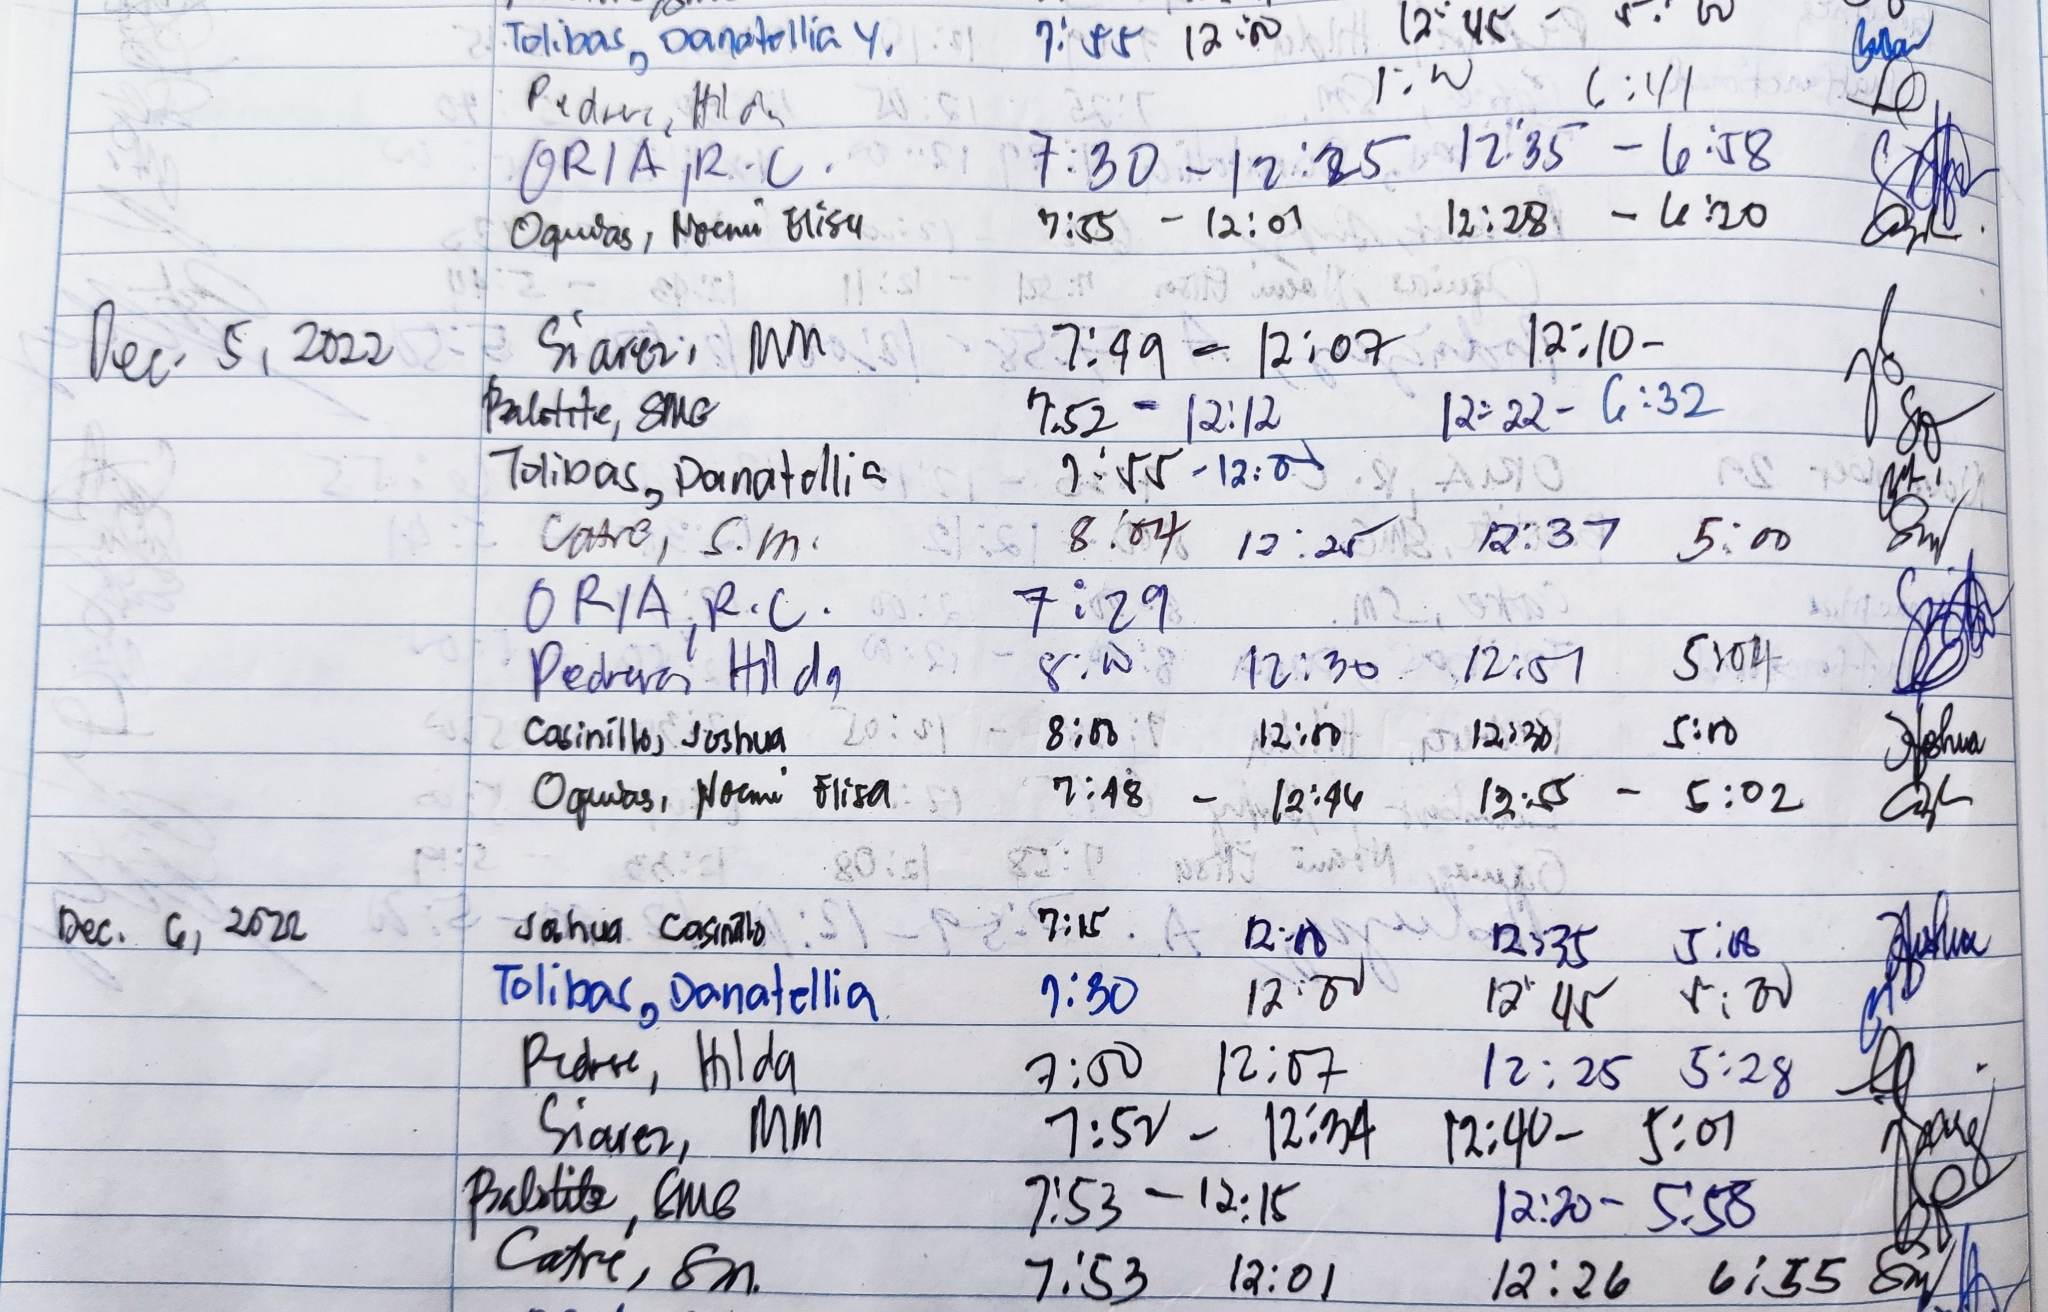 Tolibas, Danatellia Y. 7:55 12:00 12:45 - 5:00
Pedrera, Hilda 1:00
ORIA, R.C. 7:30 - 12:25 12:35 - 6:58
Oquias, Noemi Elisa 7:55 - 12:01 12:28 - 6:20
Dec. 5, 2022 Siarez, MM 7:49 - 12:07 12:10 -
Balotite, SMG 7:52 - 12:12 12:22 - 6:32
Tolibas, Danatellia 7:55 - 12:00
Catre, S.M. 8:04 12:25 12:37 5:00
ORIA, R.C. 7:29
Pedrera, Hilda 8:00 12:30 12:51 5:04
Casinillo, Joshua 8:00 12:00 12:30 5:00 Joshua
Oquias, Noemi Elisa 7:48 - 12:46 12:55 - 5:02
Dec. 6, 2022 Joshua Casinillo 7:15 12:00 12:35 5:00 Joshua
Tolibas, Danatellia 7:30 12:00 12:45 5:00
Pedrera, Hilda 7:00 12:07 12:25 5:28
Siarez, MM 7:52 - 12:34 12:40 - 5:01
Balotite, SMG 7:53 - 12:15 12:20 - 5:58
Catre, SM. 7:53 12:01 12:26 6:55